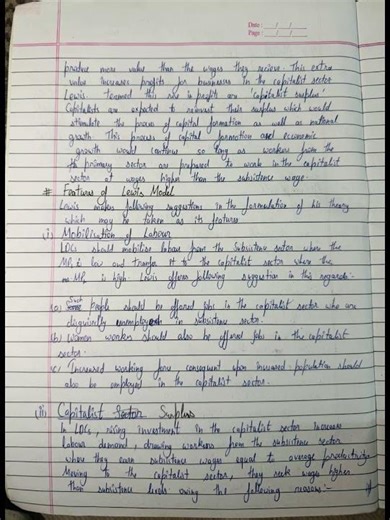 Date : / /
Page : / /
produce more value than the wages they recieve. This extra
value increases profits for businesses in the capitalist sector.
Lewis termed this rise in profit are 'capitalist surplus'
Capitalists are expected to reinvest their surplus which would
stimulate the process of capital formation as well as national
growth. This process of capital formation and economic
growth would continue so long as workers from the
primary sector are prepared to work in the capitalist
sector at wages higher than the subsistence wage.
# Features of Lewis Model
Lewis makes following suggestions in the formulation of his theory
which may be taken as its features
(i) Mobilisation of Labour
LDCs should mobilise labour from the Subsistence sector where the
MPL is low and transfer it to the capitalist sector where the
MPL is high. Lewis offers following suggestion in this regards:-
(a) Such people should be offered jobs in the capitalist sector who are
disguisedly unemployed in subsistence sector.
(b) Women workers should also be offered jobs in the capitalist
sector.
(c) Increased working force, consequent upon increased population should
also be employed in the capitalist sector.
(ii) Capitalist Sector Surplus
In LDCs, rising investment in the capitalist sector increases
labour demand, drawing workers from the subsistence sector
where they earn subsistence wages equal to average productivity.
Moving to the capitalist sector, they seek wages higher
than subsistence levels owing the following reasons:-